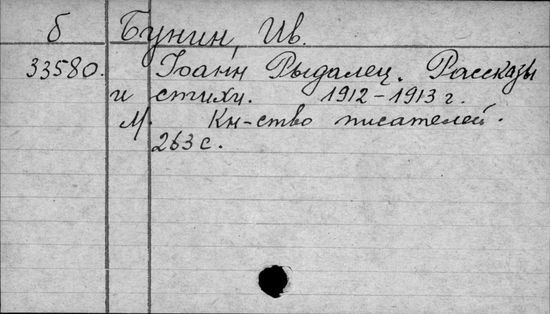 б Бунин, Ив.
33580. Іоанн Рыдалец. Рассказы
и стихи. 1912-1913 г.
М. Кн-ство писателей.
263 с.